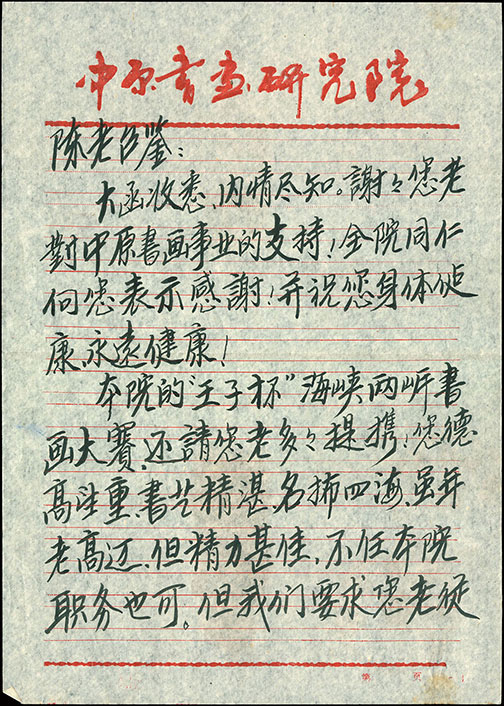 中原书画研究院
陈老台鉴：
大函收悉,内情尽知。謝々您老
對中原書画事业的支持！全院同仁
向您表示感謝！并祝您身体健
康,永遠健康！
本院的“王子杯”海峡两岸書
画大賽,还請您老多々提携！您德
高望重,書艺精湛,名揚四海,虽年
老高迈,但精力甚佳,不任本院
职务也可。但我们要求您老從
第 页